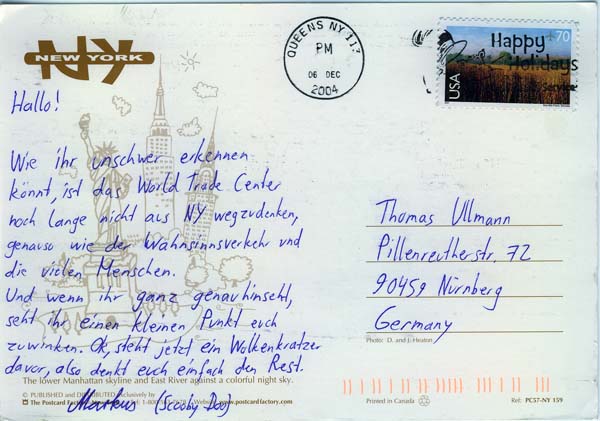 NY
NEW YORK
QUEENS NY 11
PM
06 DEC
2004
70
USA
Happy
Holidays
Service
Hallo!
Wie ihr unschwer erkennen
könnt, ist das World Trade Center
noch lange nicht aus NY wegzudenken,
genauso wie der Wahnsinnsverkehr und
die vielen Menschen.
Und wenn ihr ganz genau hinseht,
seht ihr einen kleinen Punkt euch
zuwinken. Ok, steht jetzt ein Wolkenkratzer
davor, also denkt euch einfach den Rest.
Markus (Scooby Doo)
Thomas Ullmann
Pillenreutherstr. 72
90459 Nürnberg
Germany
Photo: D. and J. Heaton
The lower Manhattan skyline and East River against a colorful night sky.
© PUBLISHED and DISTRIBUTED Exclusively by
The Postcard Factory Website: www.postcardfactory.com
Printed in Canada
Ref: PC57-NY 159